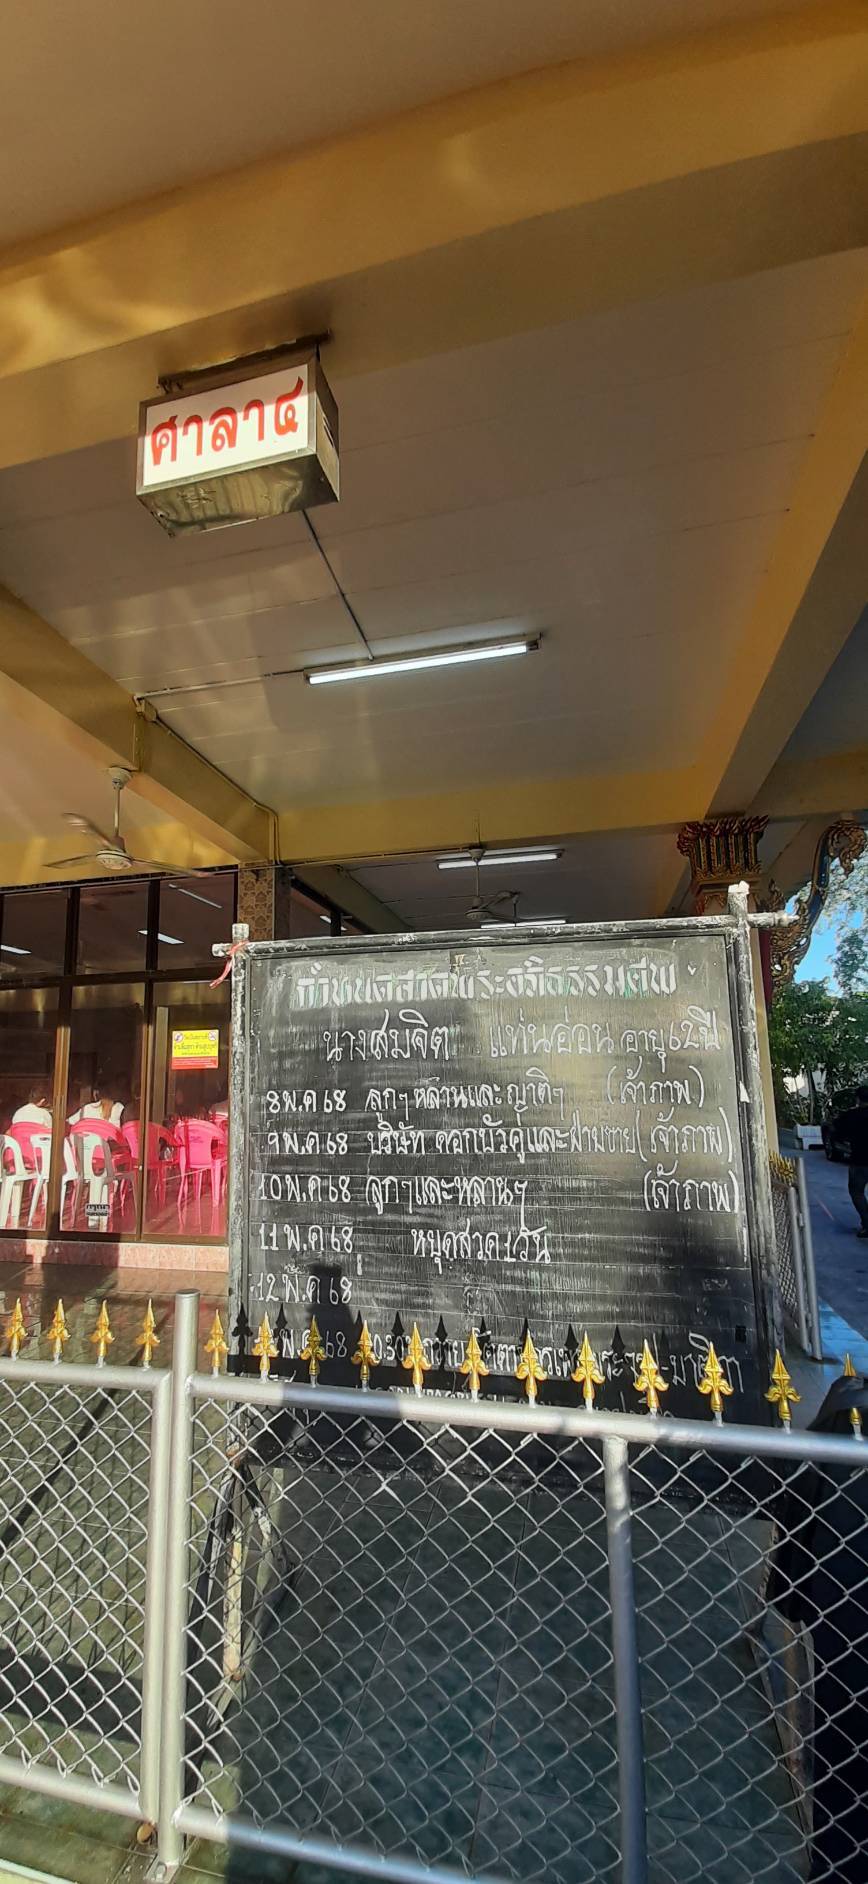 ศาลา ๔
กำหนดสวดพระอภิธรรมศพ
นางสมจิต แท่นอ่อน อายุ 62 ปี
8 พ.ค 68 ลูกๆ หลานและญาติๆ (เจ้าภาพ)
9 พ.ค 68 บริษัท ดอกบัวคู่และฝ่ายขาย (เจ้าภาพ)
10 พ.ค 68 ลูกๆและหลานๆ (เจ้าภาพ)
11 พ.ค 68 หยุดสวด 1 วัน
12 พ.ค 68
พ.ค 68